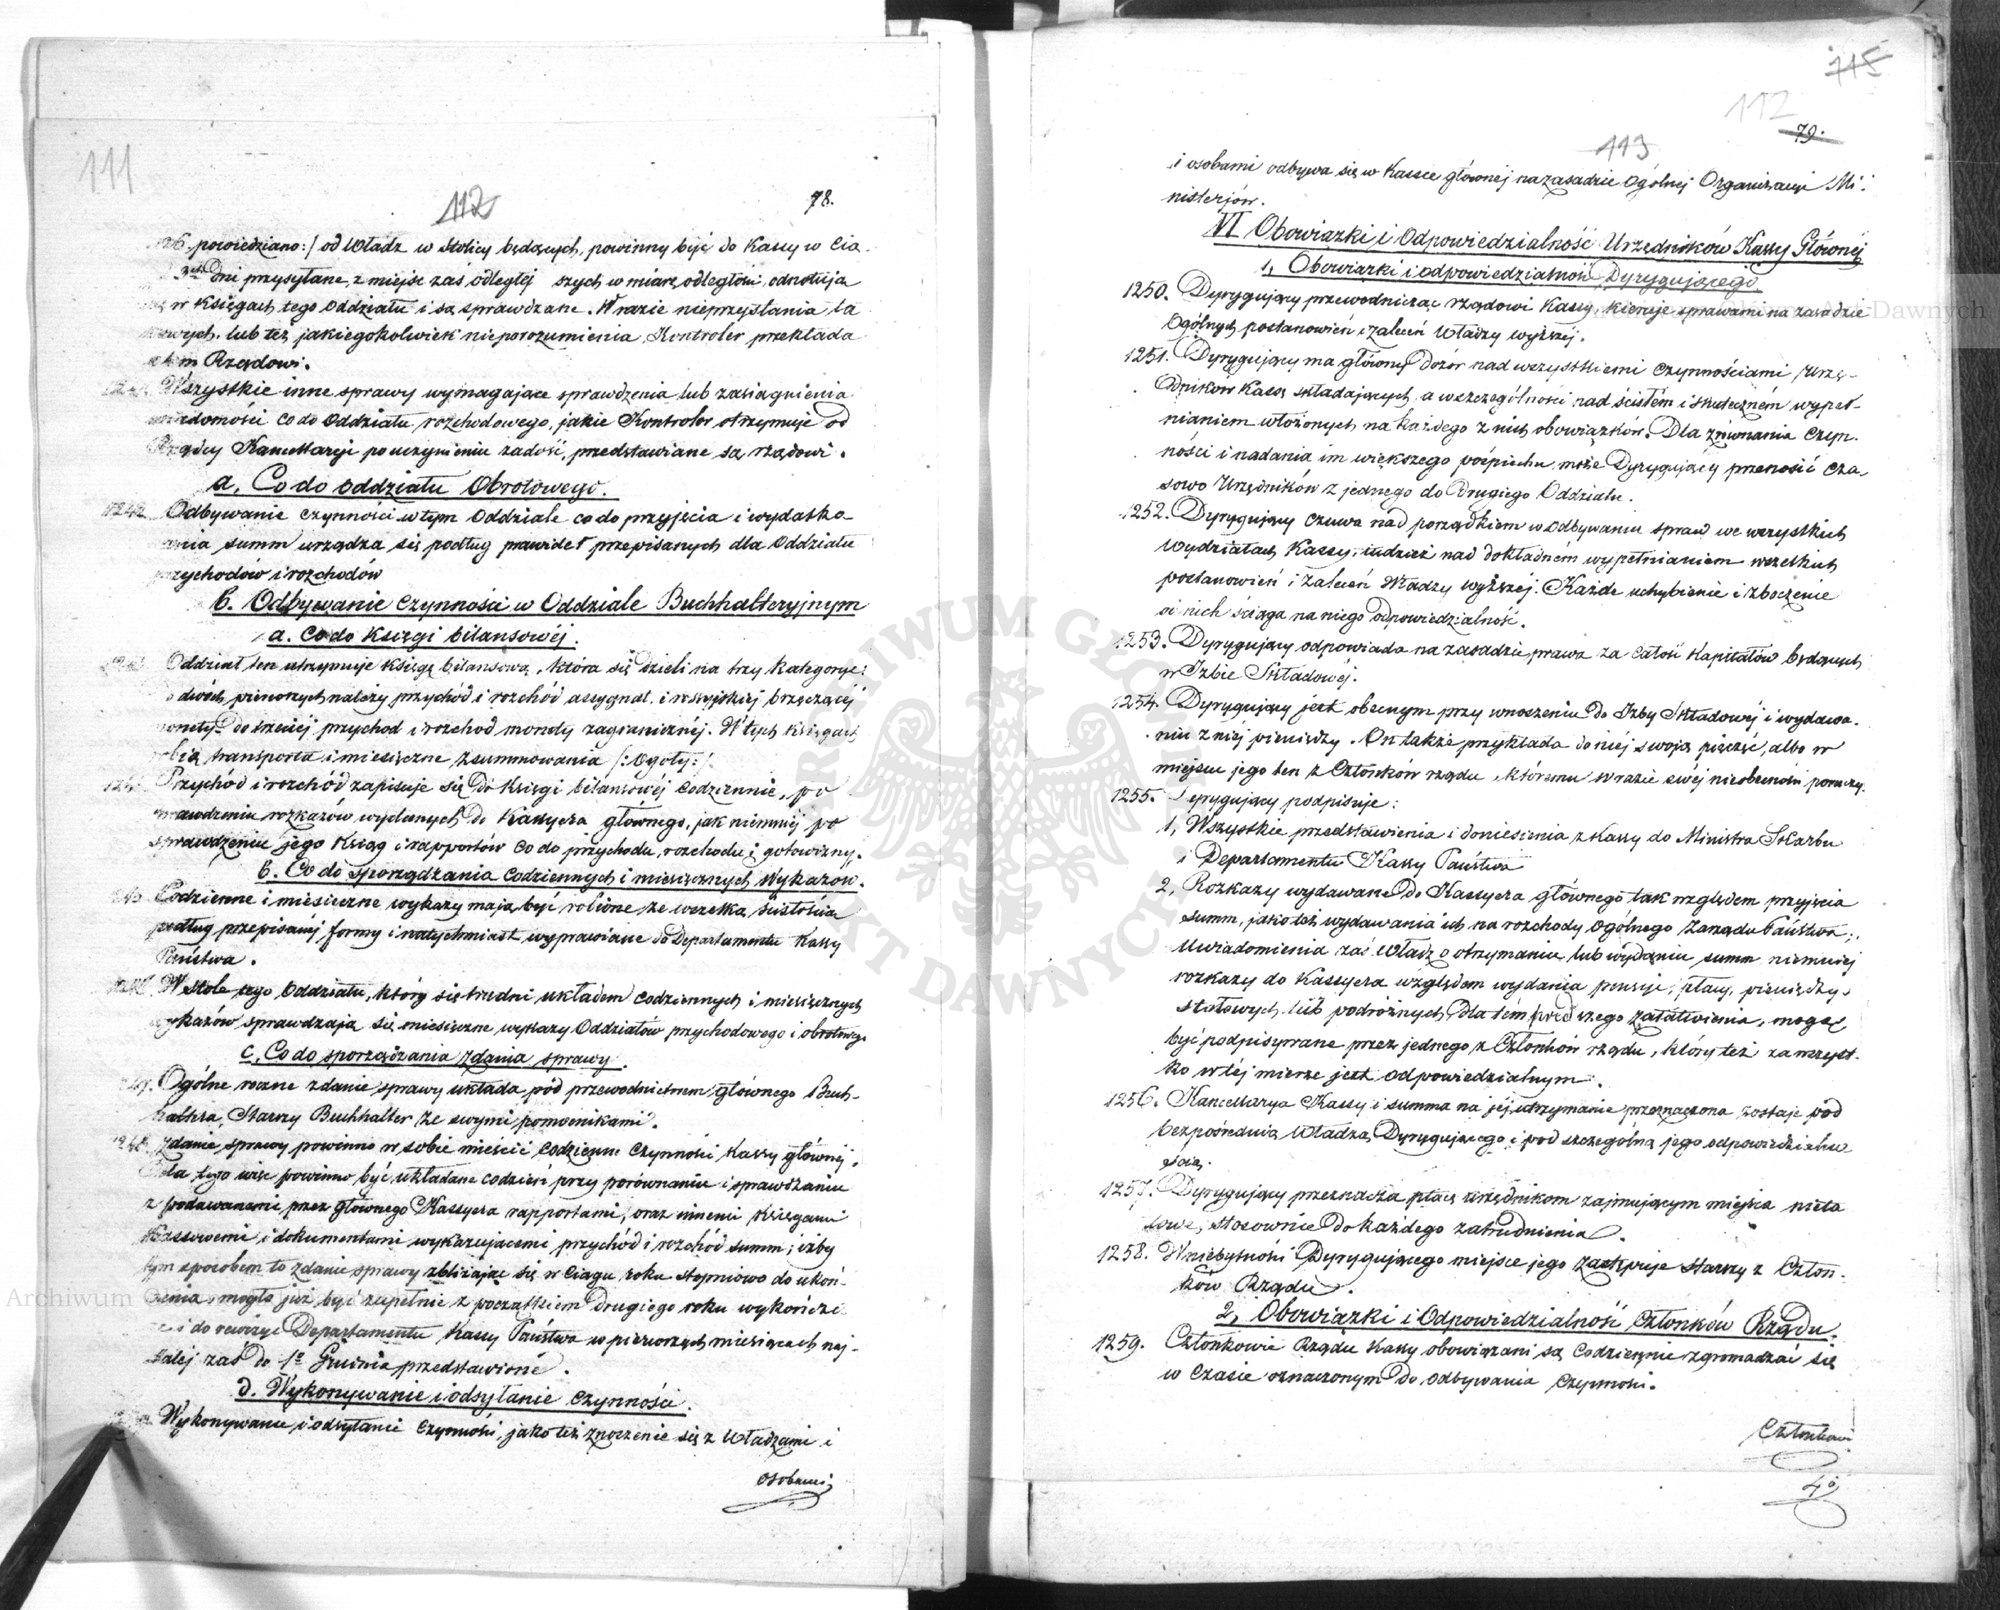 111
112
78.
powiedziano:/ od Władz w Stolicy będących, powinny być do Kassy w cią-
3ch Dni przysyłane, z miejsc zaś odległej szych w miarę odległości, odnotują
się w Księgach tego Oddziału i są sprawdzane. W razie nieprzysłania ta
kowych, lub też jakiegokolwiek nieporozumienia Kontroler przekłada
o tem Rządowi.
Wszystkie inne sprawy wymagające sprawdzenia lub zasiągnienia
wiadomości co do Oddziału rozchodowego, jakie Kontroler otrzymuje od
Rządcy Kancellaryi po uczynieniu zadość, przedstawiane są rządowi.
d, Co do Oddziału Obrotowego.
1242 Odbywanie czynności w tym Oddziale co do przyjęcia i wydatko-
wania summ urządza się podług prawideł przepisanych dla Oddziału
przychodów i rozchodów
6. Odbywanie czynności w Oddziale Buchhalteryjnym
a. co do Księgi bilansowéj.
Oddział ten utrzymuje Księgę bilansową, która się dzieli na trzy kategorye:
do dwóch pierwszych należy przychód i rozchód assygnat. i rossyjskiej brzęczącéj
monety do trzeciej przychod i rozchod monety zagranicznéj. W tych księgach
robią transporta i miesięczne zsummowania /:Ogoły:/.
Przychód i rozchód zapisuje się do Księgi bilansowéj codziennie, po
sprawdzeniu rozkazów wydanych do Kassyera głównego, jak niemniéj po
sprawdzeniu jego Ksiąg i rapportów co do przychodu, rozchodu i gotowizny.
b. Co do sporządzania codziennych i miesięcznych Wykazów.
Codzienne i miesięczne wykazy mają być robione ze wszelką ścisłością
podług przepisanéj formy i natychmiast wyprawiane do Departamentu Kassy
Państwa.
W stole tego Oddziału, który się trudni układem codziennych i miesięcznych
wykazów sprawdzają się miesięczne wykazy Oddziałów przychodowego i obrotowego
c. Co do sporządzania zdania sprawy.
Ogólne roczne zdanie sprawy układa pod przewodnictwem głównego Buch-
haltera, Starszy Buchhalter ze swymi pomocnikami.
Zdanie sprawy powinno w sobie mieścić codzienne czynności Kassy głównéj,
dla tego więc powinno być układane codzień przy porównaniu i sprawdzaniu
z podawanemi przez głównego Kassyera rapportami, oraz innemi księgami
Kassowemi i dokumentami wykazującemi przychód i rozchód summ; iżby
tym sposobem to zdanie sprawy zbliżając się w ciągu roku stopniowo do ukoń-
czenia, mogło już być zupełnie z początkiem drugiego roku wykończo
ne i do rewizyi Departamentu Kassy Państwa w pierwszych miesiącach naj-
dalej zaś do 1o Grudnia przedstawioné.
d. Wykonywanie i odsyłanie czynności.
Wykonywanie i odsyłanie czynności, jako też znoszenie się z Władzami i
osobami
715
112
79.
113
i osobami odbywa się w Kassie głównej na zasadzie Ogólnej Organizacyi Mi-
nisterjów.
VI Obowiązki i Odpowiedzialność Urzędników Kassy Głównéj
1, Obowiązki i odpowiedzialność Dyrygującego
1250. Dyrygujący przewodnicząc rządowi Kassy, kieruje sprawami na zasadzie
Ogólnych postanowień i zaleceń Władzy wyższéj.
1251. Dyrygujący ma główny dozór nad wszystkiemi czynnościami Urzę-
dników Kassę składających, a w szczególności nad ścisłém i skuteczném wypeł-
nianiem włożonych na każdego z nich obowiązków. Dla zrównania czyn-
ności i nadania im większego pośpiechu, może Dyrygujący przenosić cza-
sowo Urzędników z jednego do drugiego Oddziału.
1252. Dyrygujący czuwa nad porządkiem w odbywaniu spraw we wszystkich
Wydziałach Kassy, tudzież nad dokładném wypełnianiem wszelkich
postanowień i zaleceń Władzy wyższéj. Każde uchybienie i zboczenie
od nich ściąga na niego odpowiedzialność.
1253. Dyrygujący odpowiada na zasadzie prawa za całość kapitałów będących
w Izbie Składowéj.
1254. Dyrygujący jest obecnym przy wnoszeniu do Izby Składowéj i wydawa-
niu z niéj pieniędzy. On także przykłada do niej swoją pieczęć, albo w
miejscu jego ten z Członków rządu, któremu w razie swéj nieobecności poruczy.
1255. Dyrygujący podpisuje:
1, Wszystkie przedstawienia i doniesienia z Kassy do Ministra Skarbu
i Departamentu Kassy Państwa
2, Rozkazy wydawane do Kassyera głównego tak względem przyjęcia
summ, jako też wydawania ich na rozchody ogólnego Zarządu Państwa;
Uwiadomienia zaś Władz o otrzymaniu lub wydaniu summ niemniéj
rozkazy do Kassyera względem wydania pensyi, płacy, pieniędzy
stołowych lub podróżnych dla tém prędszego załatwienia, mogą
być podpisywane przez jednego z Członków rządu, który też za wszyst-
ko w téj mierze jest odpowiedzialnym.
1256. Kancellarya Kassy i summa na jéj utrzymanie przeznaczona zostaje pod
bezpośrednią władzą Dyrygującego i pod szczególną jego odpowiedzialno
ścią.
1257. Dyrygujący przeznacza płacę urzędnikom zajmującym miejsca nieta
towe, stosownie do każdego zatrudnienia.
1258. W niebytności Dyrygującego miejsce jego zastępuje starszy z Człon-
ków Rządu.
2, Obowiązki i Odpowiedzialność Członków Rządu.
1259. Członkowie Rządu Kassy obowiązani są codziennie zgromadzać się
w czasie oznaczonym do odbywania czynności.
Członkowi
40
ARCHIWUM GŁÓWNE AKT DAWNYCH